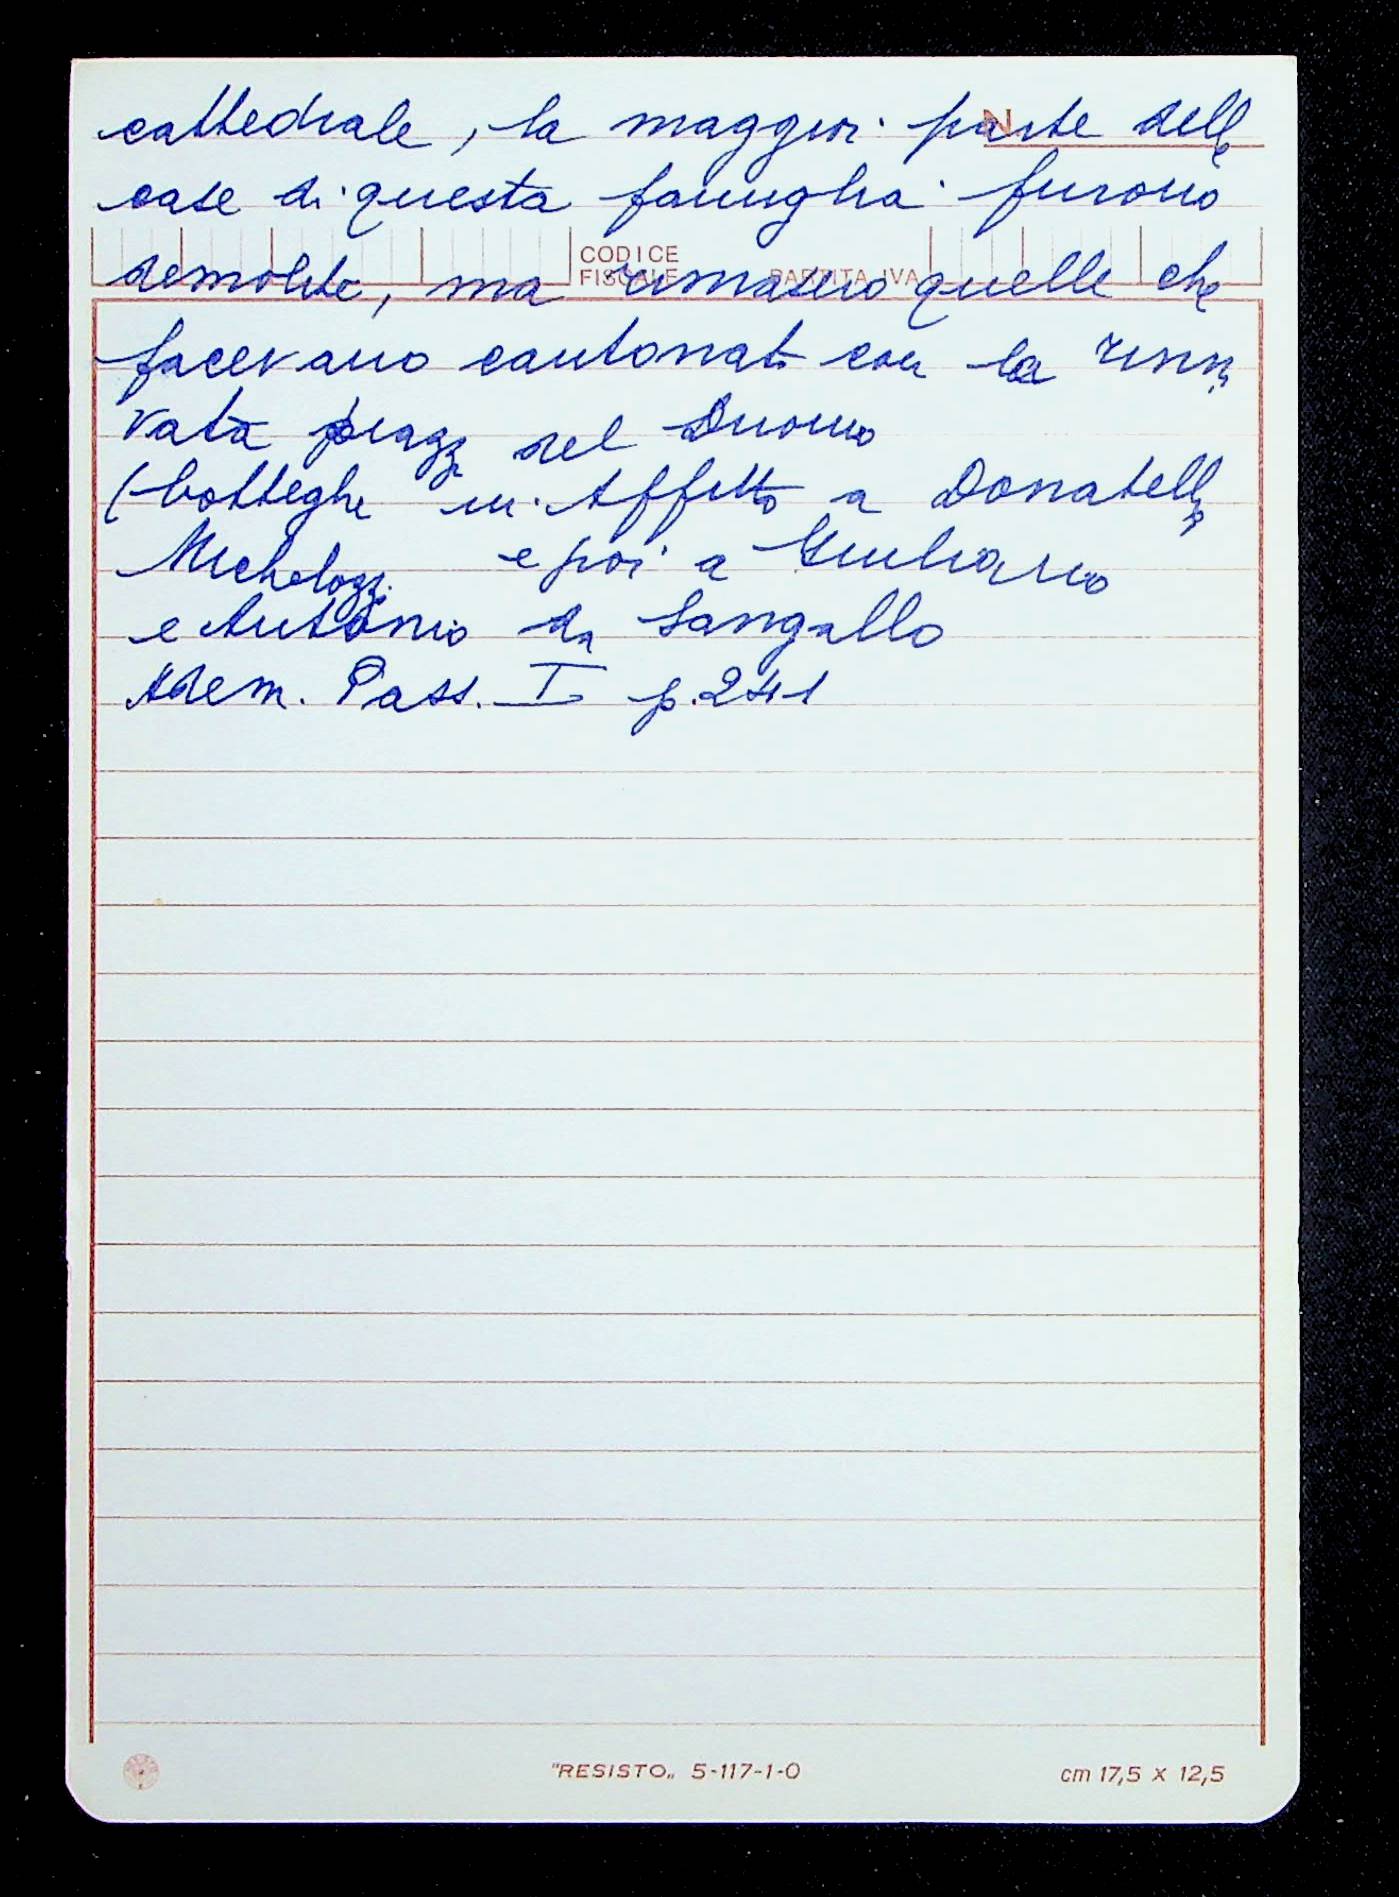 cattedrale, la maggior parte delle
N
case di questa famiglia furono
CODICE
FISCALE PARTITA IVA
demolite, ma rimasero quelle che
facevano cantonata con la rinno
vata piazza del Duomo
(botteghe in affitto a Donatello
Michelozzi e poi a Giuliano
e Antonio da Sangallo
Adem. Pass. I p. 241
"RESISTO„ 5-117-1-0
cm 17,5 x 12,5